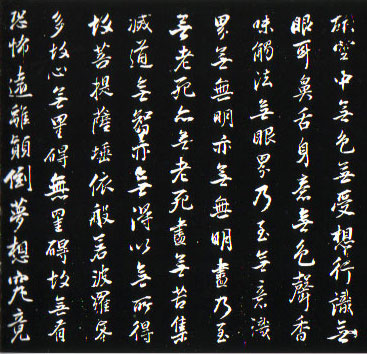 故空中無色無受想行識無
眼耳鼻舌身意無色聲香
味觸法無眼界乃至無意識
界無無明亦無無明盡乃至
無老死亦無老死盡無苦集
滅道無智亦無得以無所得
故菩提薩埵依般若波羅蜜
多故心無罣碍無罣碍故無有
恐怖遠離顛倒夢想究竟